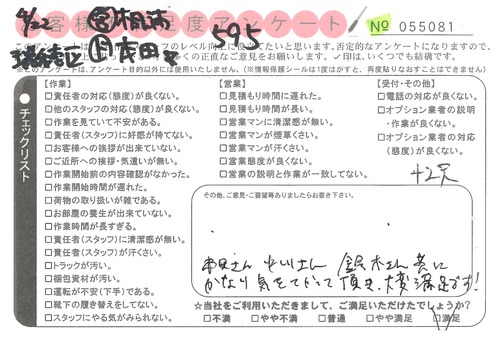 9/22 ㊢相涼 595
お客様満足度アンケート No 055081
球磨区 茂田
このアンケートは、
フのレベル向上に役立てたいと思います。否定的なアンケートになりますので、
くの正直なご意見をお願いします。✓印は、いくつでも結構です。
※このアンケートは、アンケート目的以外には使用いたしません。(※情報保護シールは1度はがすと、再度貼りなおすことはできません)
チェックリスト
【作業】
□責任者の対応(態度)が良くない。
□他のスタッフの対応(態度)が良くない。
□作業を見ていて不安がある。
□責任者(スタッフ)に好感が持てない。
□お客様への挨拶が出来ていない。
□ご近所への挨拶・気遣いが無い。
□作業開始前の内容確認がなかった。
□作業開始時間が遅れた。
□荷物の取り扱いが雑である。
□お部屋の養生が出来ていない。
□作業時間が長すぎる。
□責任者(スタッフ)に清潔感が無い。
□責任者(スタッフ)が汗くさい。
□トラックが汚い。
□梱包資材が汚い。
□運転が不安(下手)である。
□靴下の履き替えをしてない。
□スタッフにやる気がみられない。
【営業】
□見積もり時間に遅れた。
□見積もり時間が長い。
□営業マンに清潔感が無い。
□営業マンが煙草くさい。
□営業マンが汗くさい。
□営業態度が良くない。
□営業の説明と作業が一致してない。
【受付・その他】
□電話の対応が良くない。
□オプション業者の説明
・作業が良くない。
□オプション業者の対応
(態度)が良くない。
その他、ご意見・ご要望等ありましたらお書き下さい。
鈴木さん 共に
かなり気をつかって頂き、大変満足です!
★当社をご利用いただきまして、ご満足いただけたでしょうか?
□不満 □やや不満 □普通 □やや満足 □満足